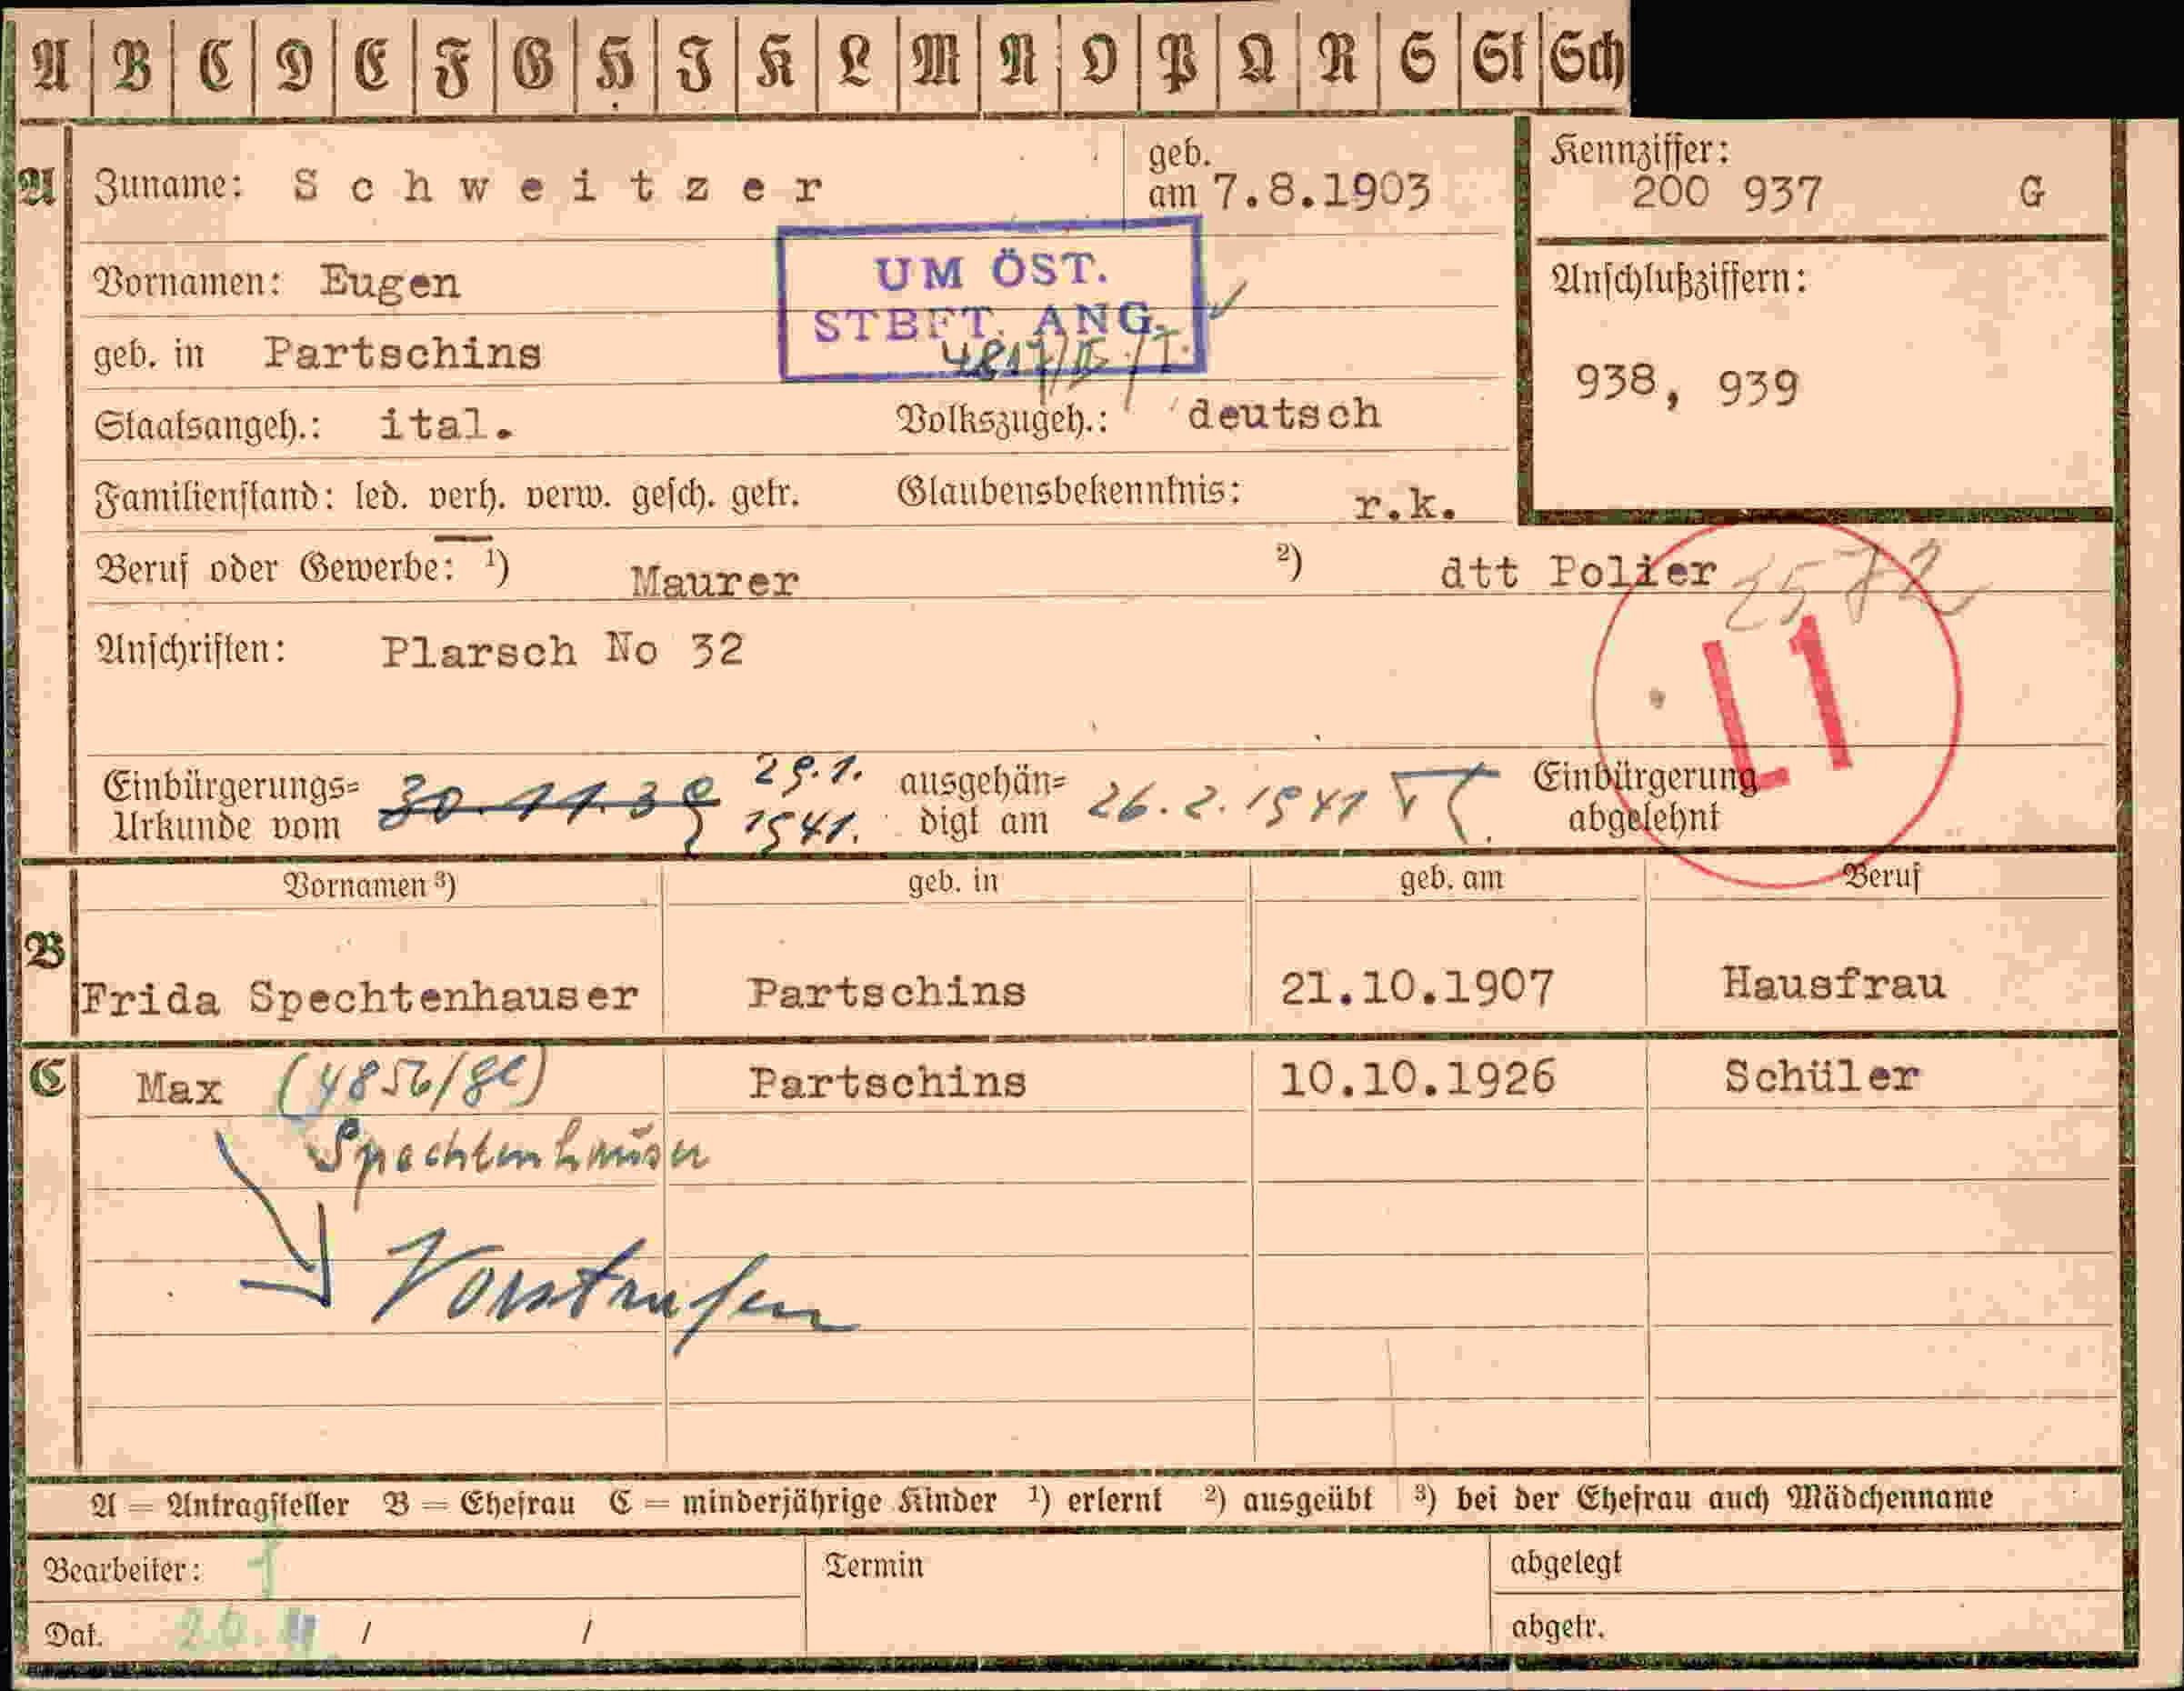 A B C D E F G H I K L M N O P Q R S St Sch
A Zuname: Schweitzer geb. am 7.8.1903 Kennziffer: 200 937 G
Vornamen: Eugen UM ÖST. Anschlußziffern:
STBFT. ANG.
geb. in Partschins 938, 939
Staatsangeh.: ital. Volkszugeh.: deutsch
Familienstand: led. verh. verw. gesch. getr. Glaubensbekenntnis: r.k.
Beruf oder Gewerbe: 1) Maurer 2) dtt Polier 2572
Anschriften: Plarsch No 32 L1
Einbürgerungs= 30.11.39 29.1. ausgehän= 26.2.1941 Einbürgerung
Urkunde vom 1941. digt am abgelehnt
Vornamen 3) geb. in geb. am Beruf
B Frida Spechtenhauser Partschins 21.10.1907 Hausfrau
C Max Partschins 10.10.1926 Schüler
Spechtenhauser
Vorstrafen
A = Antragsteller B = Ehefrau C = minderjährige Kinder 1) erlernt 2) ausgeübt 3) bei der Ehefrau auch Mädchenname
Bearbeiter: Termin abgelegt
Dat. / / abgetr.